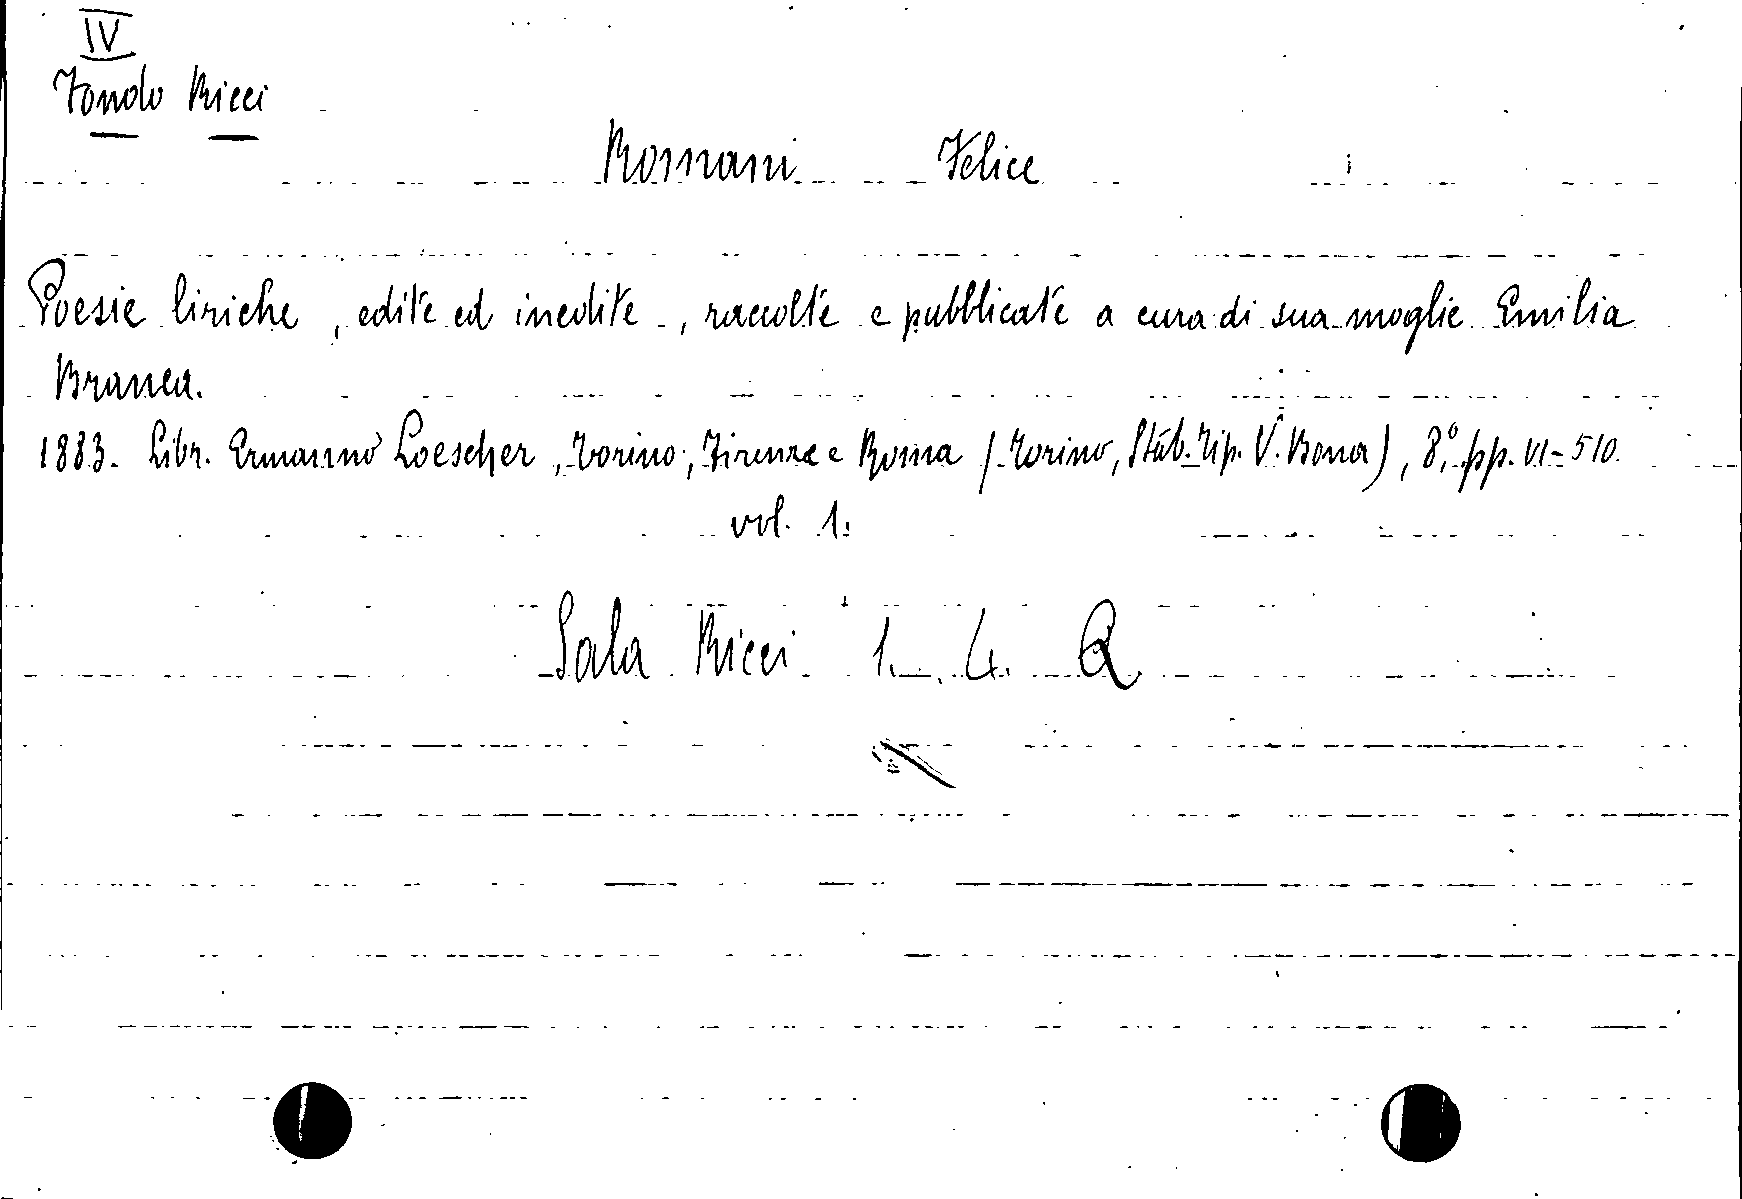 IV
Fondo Ricci
Romani Felice
Poesie liriche, edite ed inedite, raccolte e pubblicate a cura di sua moglie Emilia
Branca.
1883. Libr. Ermanno Loescher, Torino, Firenze e Roma (Torino, Stab. Tip. V. Bona), 8º, pp. VI-510
vol. 1.
Sala Ricci 1. 4. Q